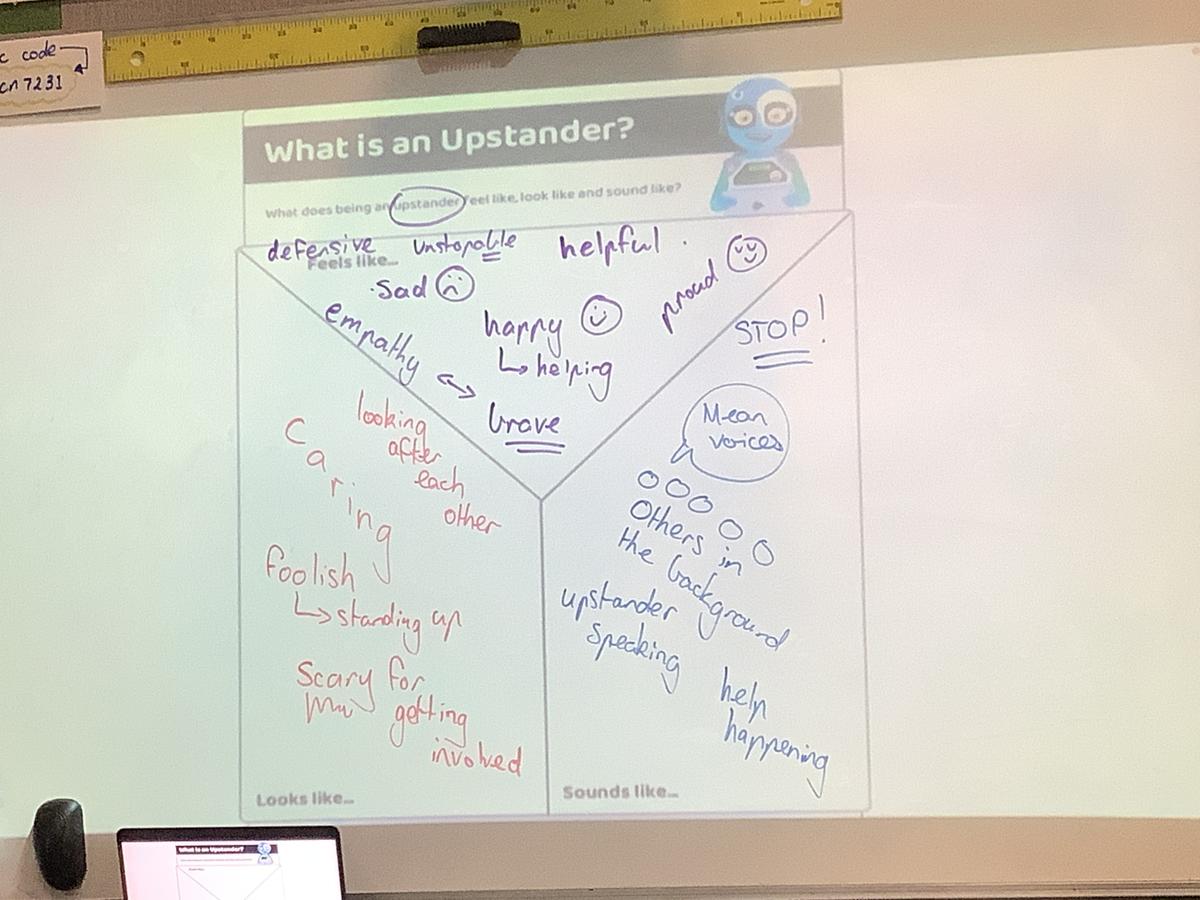 c code
cn 7231
What is an Upstander?
What does being an upstander feel like, look like and sound like?
defensive unstopable helpful
Feels like...
sad
proud
empathy
happy
↳ helping
brave
Caring
looking
after
each
other
foolish
↳ standing up
Scary for
getting
involved
Looks like...
STOP!
Mean
voices
Others in
the background
upstander
speaking
help
happening
Sounds like...
What is an Upstander?